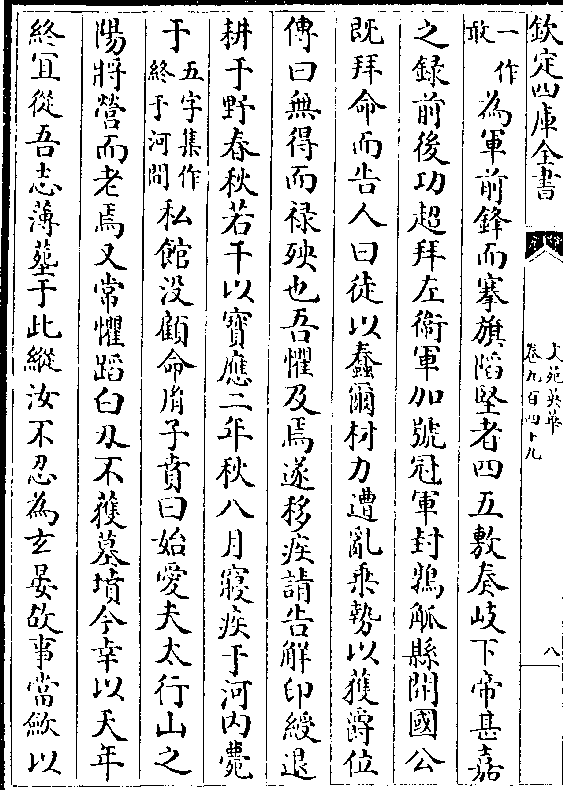 欽定四庫全書
文苑英華
卷九百四十九
八
一作
敢
為軍前鋒而搴旗䧟堅者四五敷奏岐下帝甚嘉
之録前後功超拜左衛軍加號冠軍封鶉觚縣開國公
既拜命而告人曰徒以蠢爾材力遭亂乗勢以獲爵位
傳曰無得而禄殃也吾懼及焉遂移疾請告解印綬退
耕于野春秋若干以寶應二年秋八月寢疾于河内薨
于
五字集作
終于河間
私館没顧命膓子賁曰始愛夫太行山之
陽將營而老焉又常懼蹈白刄不獲墓墳今幸以天年
終冝從吾志薄塟于此縱汝不忍為玄晏故事當歛以